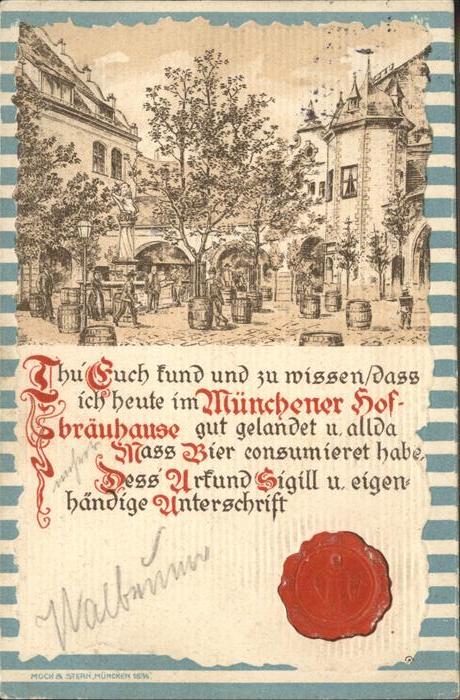 Thu Euch kund und zu wissen/dass
ich heute im Münchener Hof-
bräuhause gut gelandet u. allda
Mass Bier consumieret habe.
Dess Urkund Sigill u. eigen-
händige Unterschrift
MOCH & STERN, MÜNCHEN